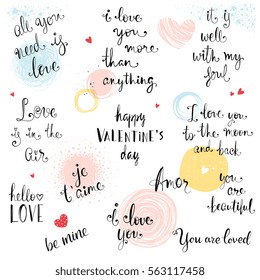 all you
need is
love
i love
you
more
than
anything
it is
well
with my
soul
Love
is in the
Air
happy
VALENTINE'S
day
I love you
to the moon
and back
hello
LOVE
je
t'aime
Amor
you
are
beautiful
be mine
i love
you
You are loved
shutterstock.com · 563117458